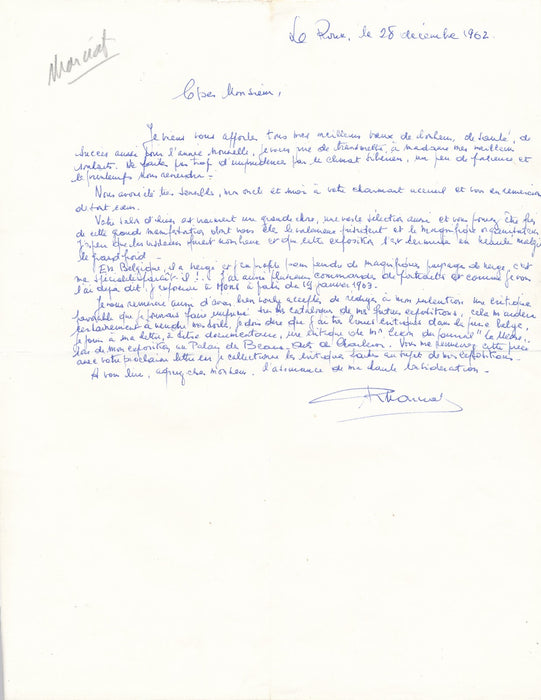 Marciat
Le Roux, le 28 décembre 1962.
Cher Monsieur,
Je viens vous apporter tous mes meilleurs vœux de bonheur, de santé, de
succès aussi pour l'année nouvelle, je vous prie de transmettre à madame mes meilleurs
souhaits. Ne faites pas trop d'imprudences par le climat sibérien, un peu de patience et
le printemps nous reviendra.
Nous avons été très sensibles, mon oncle et moi à votre charmant accueil et vous en remercions
de tout cœur.
Votre salon d'hiver est vraiment une grande chose, une vaste sélection aussi et vous pouvez être fier
de cette grande manifestation dont vous êtes le président et le magnifique organisateur.
que les visiteurs furent nombreux et que cette exposition s'est terminée en beauté malgré
le grand froid.
En Belgique, il a neigé et j'en profite pour peindre de magnifiques paysages de neige, c'est
ma spécialité J'ai aussi plusieurs commandes de portraits et comme je vous
l'ai déjà dit, j'expose à Mons à partir du 19 janvier 1963.
Je vous remercie aussi d'avoir bien voulu accepter de rédiger à mon intention une critique
favorable que je pourrais faire imprimer sur les catalogues de mes futures expositions, cela m'aidera
à vendre mes toiles, je dois dire que j'ai très bonnes critiques dans la presse belge,
je joins à ma lettre, à titre documentaire, une critique de Mr du journal "
lors de mon exposition au Palais des Beaux-Arts de Charleroi. Vous me renverrez cette pièce
avec votre prochaine lettre car je collectionne les critiques parues au sujet de mes expositions.
A vous lire, agréez cher Monsieur, l'assurance de ma haute considération.